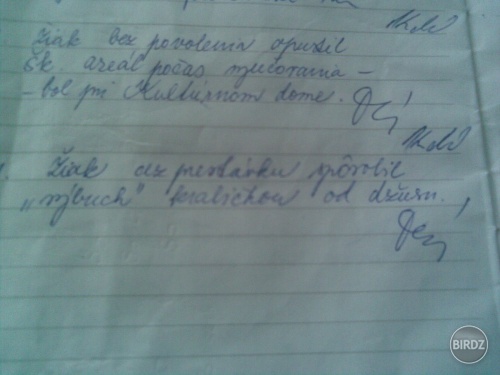 Žiak bez povolenia opustil
šk. areál počas vyučovania -
- bol pri Kultúrnom dome.
Žiak cez prestávku spôsobil
„výbuch" krabičkou od džúsu.
BIRDZ